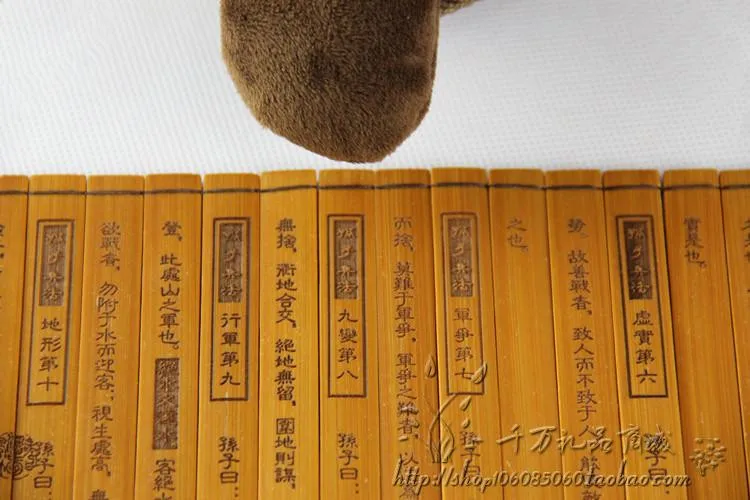 實是也。
孫子兵法 虛實第六 孫子曰：
故善戰者，致人而不致于人，能
之也。
孫子兵法 軍爭第七 孫子曰：
而捨，莫難于軍爭，軍爭之難者，以
孫子兵法 九變第八 孫子曰：
無捨，衢地合交，絕地無留，圍地則謀，
孫子兵法 行軍第九 孫子曰：
登，此處山之軍也。客絕水
欲戰者，勿附于水而迎客，視生處高，無
孫子兵法 地形第十 孫子曰：
千万礼品商城
http://shop106085060.taobao.com